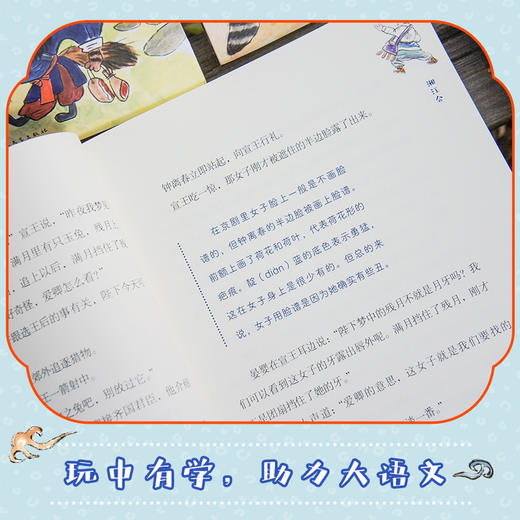 湘江会
钟离春立即站起，向宣王行礼。
宣王吃一惊，那女子刚才被遮住的半边脸露了出来。
在京剧里女子脸上一般是不画脸
谱的，但钟离春的半边脸被画上脸谱。
前额上画了荷花和荷叶，代表荷花形的
疤痕。靛（diàn）蓝的底色表示勇猛，
这在女子身上是很少有的。但总的来
说，女子用脸谱是因为她确实有些丑。
晏婴在宣王耳边说：“陛下梦中的残月不就是月牙吗？我
们可以看到这女子的牙露出唇外呢。满月挡住了残月，刚才
是团扇挡住了她的牙。”
声道：“爱卿的意思，这女子就是我们要找的
谈一番。”
宣王说，“昨夜我梦见
满月里有只玉兔，残月
，追上以后，满月挡住了残
好奇怪，爱卿怎么看？”
跟选王后的事有关，陛下今天
郊外追逐猎物。
王一箭射中。
之兔吧，别放过它。”
接齐国君臣，他介绍
玩中有学，助力大语文